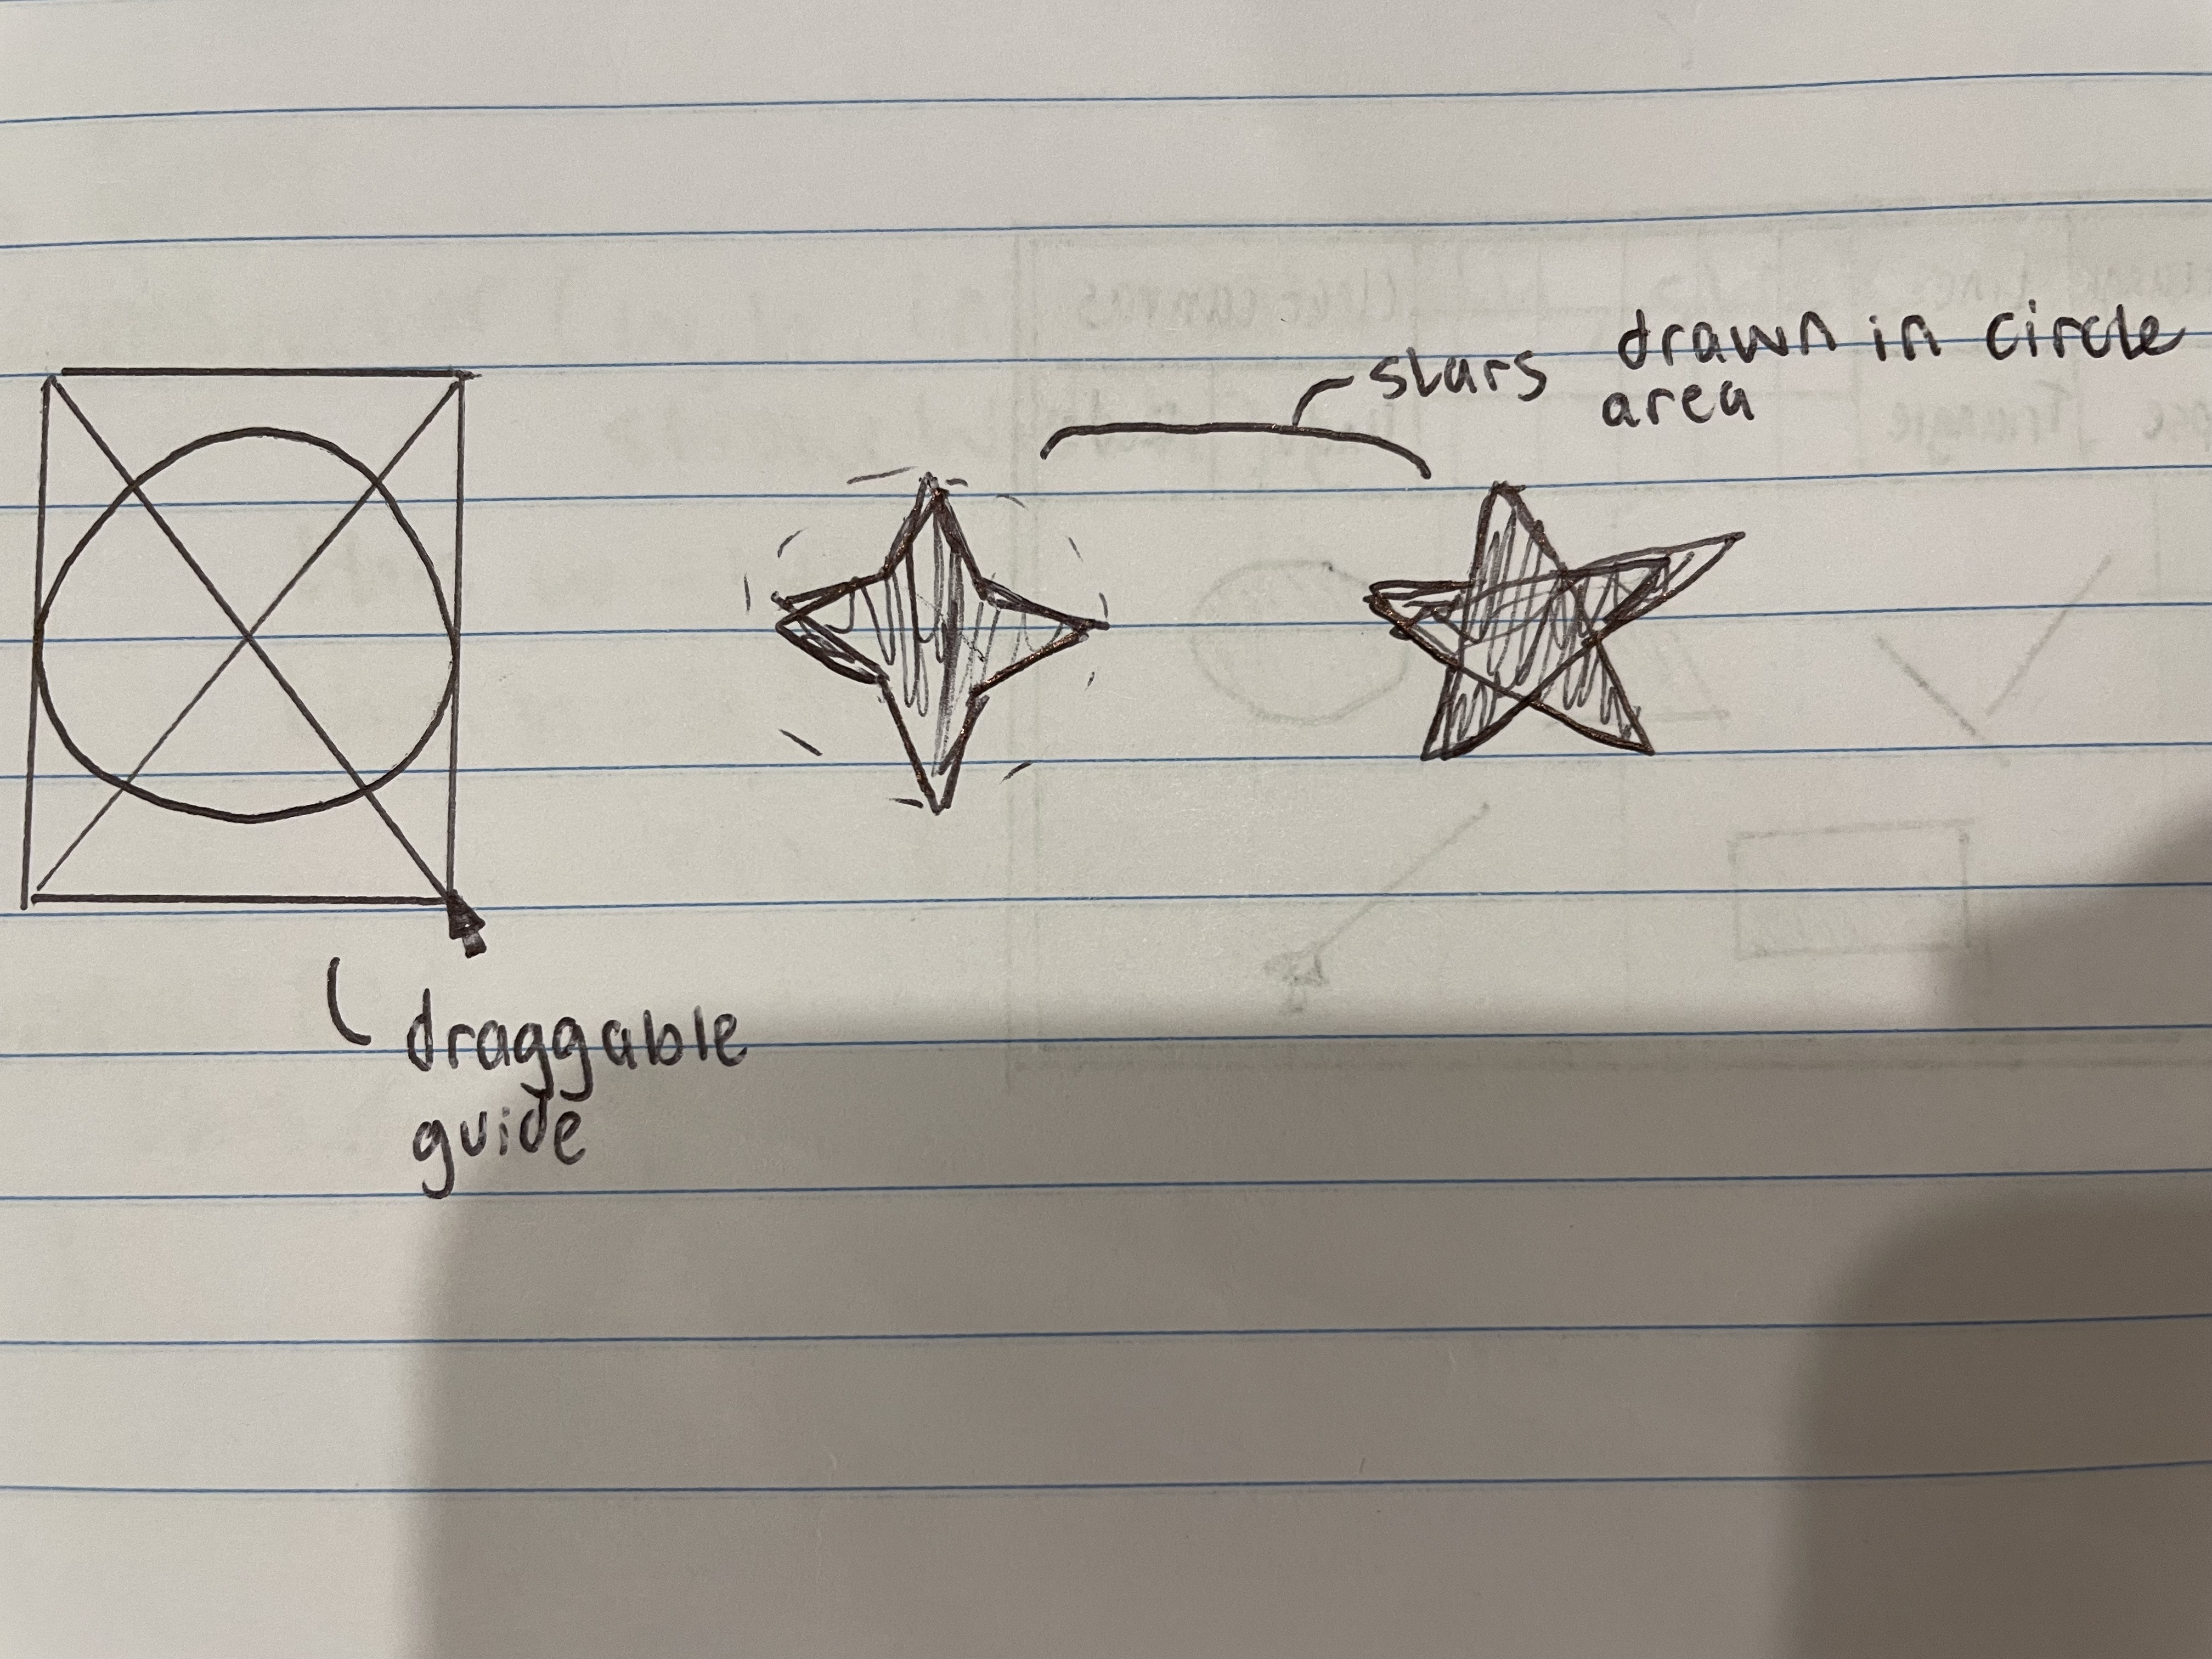 stars drawn in circle
area
draggable
guide